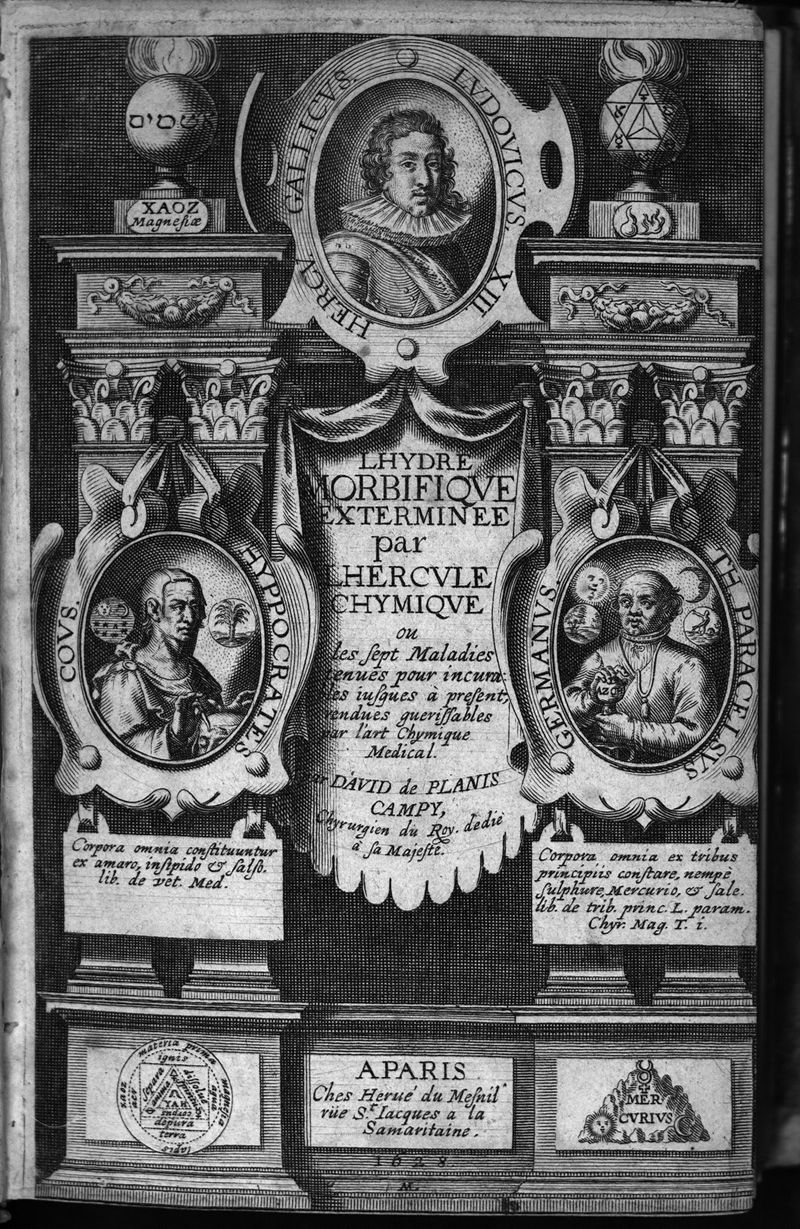 אשמים
XAOZ
Magnesiæ
HERCV. GALLICVS. LVDOVICVS. XIII.
LHYDRE
MORBIFIQVE
EXTERMINEE
par
LHERCVLE
CHYMIQVE
ou
les sept Maladies
tenues pour incura:
les iusques à present,
rendues guerissables
par l'art Chymique
Medical.
Par DAVID de PLANIS
CAMPY,
Chyrurgien du Roy. dedié
à sa Majesté.
COVS. HYPPOCRATES
GERMANVS. TH PARACELSVS
AZO
Corpora omnia constituuntur
ex amaro, insipido & salso.
lib. de vet. Med.
Corpora omnia ex tribus
principiis constare, nempe
sulphure, Mercurio, & sale.
lib. de trib. princ. L. param.
Chyr. Mag. T. i.
materia prima
magnesia
lapis
xaoz
ignis
aqua
terra
aer
separa
dissolue
depura
A PARIS
Ches Herué du Mesnil
rüe St. Iacques a la
Samaritaine.
MER
CVRIVS
1628
M.